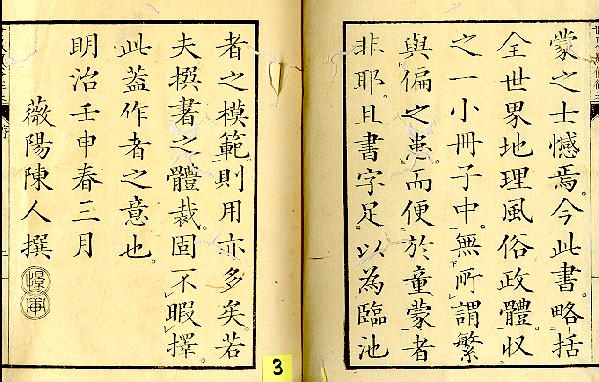 蒙之士憾焉。今此書。略括
全世界地理風俗政體。収
之一小冊子中。無所謂繁
與偏之患。而便於童蒙者
非耶。且書字足。以為臨池
者之模範。則用亦多矣。若
夫撰書之體裁。固不暇擇。
此蓋作者之意也。
明治壬申春三月
薇陽陳人撰
3